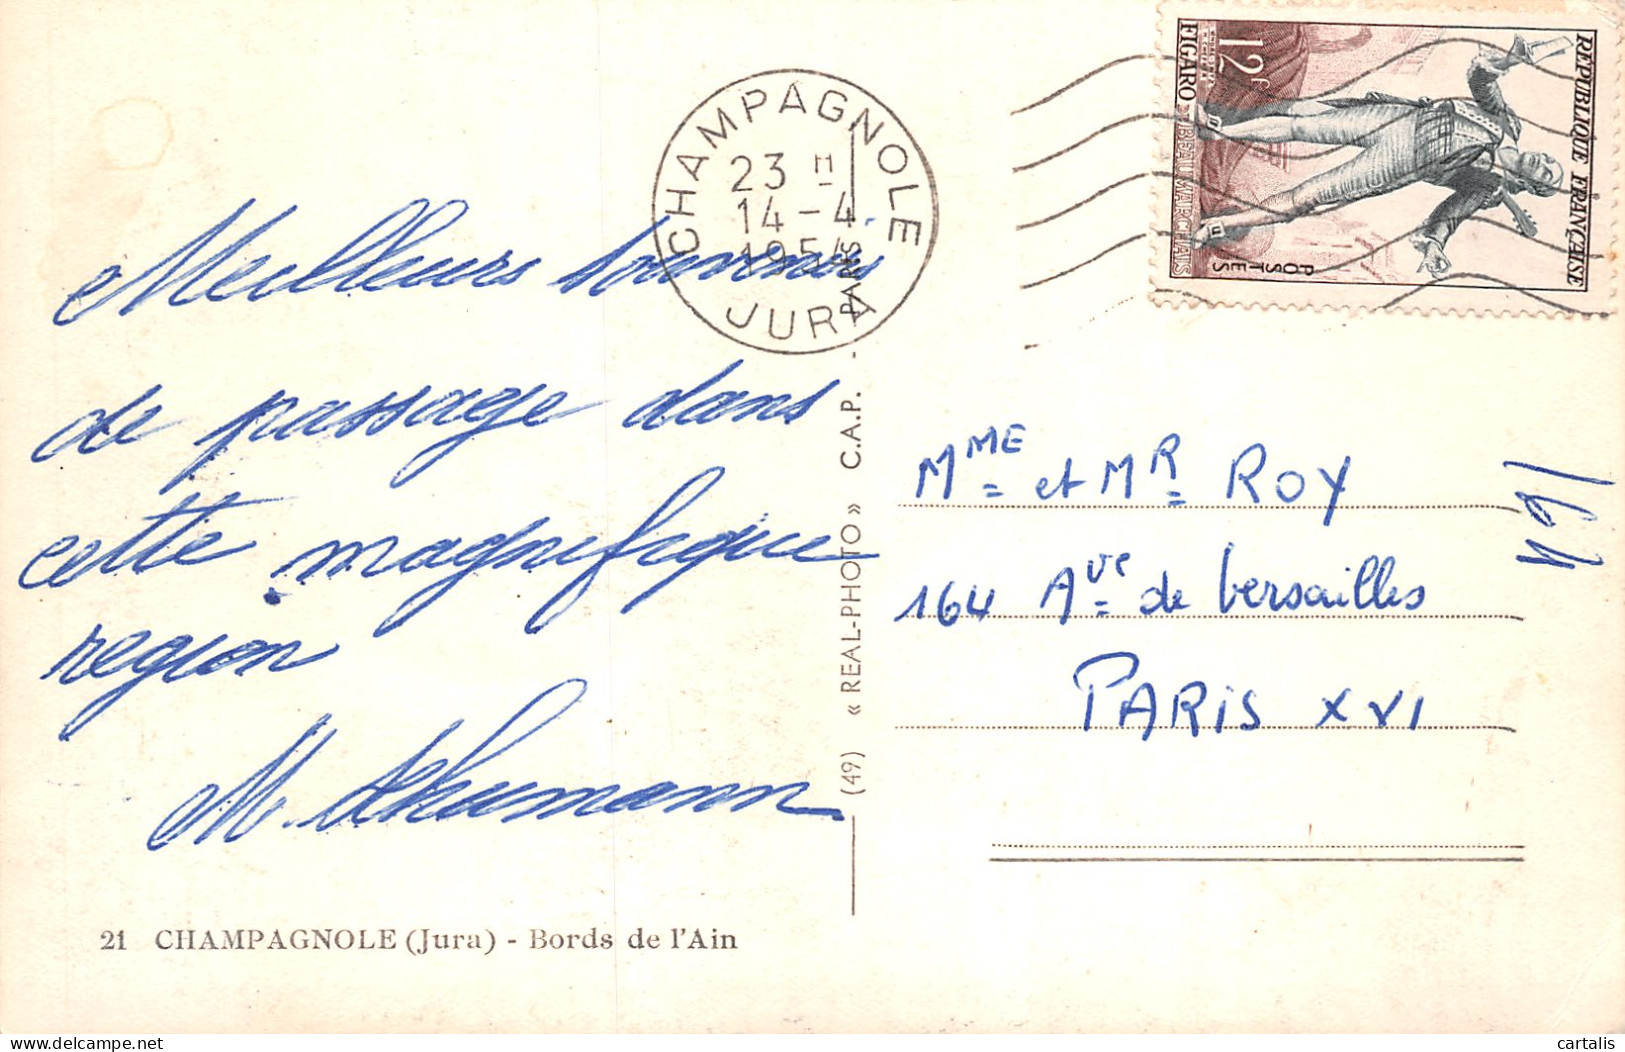 Meilleurs souvenirs
de passage dans
cette magnifique
region
M. Schumann
21 CHAMPAGNOLE (Jura) - Bords de l'Ain
(49) « REAL-PHOTO » C.A.P. - PARIS
CHAMPAGNOLE
23 H
14 - 4
1954
JURA
REPUBLIQUE FRANÇAISE
POSTES
12F
FIGARO
BEAUMARCHAIS
MME et MR ROY
164 Ave de Versailles
PARIS XVI
cartalis